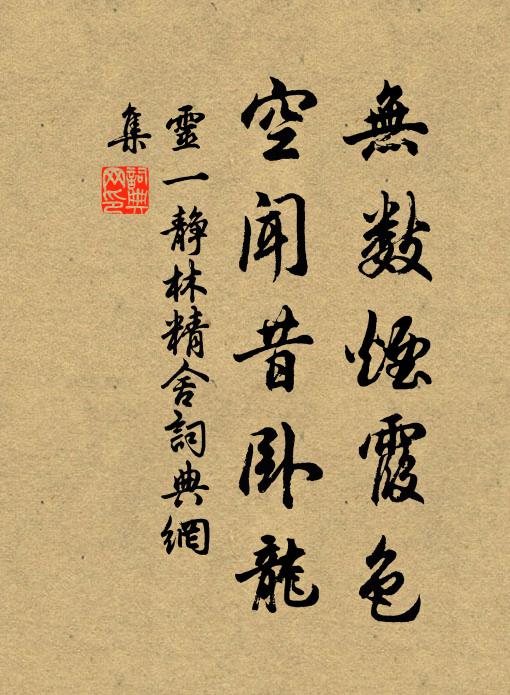 無數煙霞色
空聞昔臥龍
靈一靜林精舍詞典網
集
詞典網印